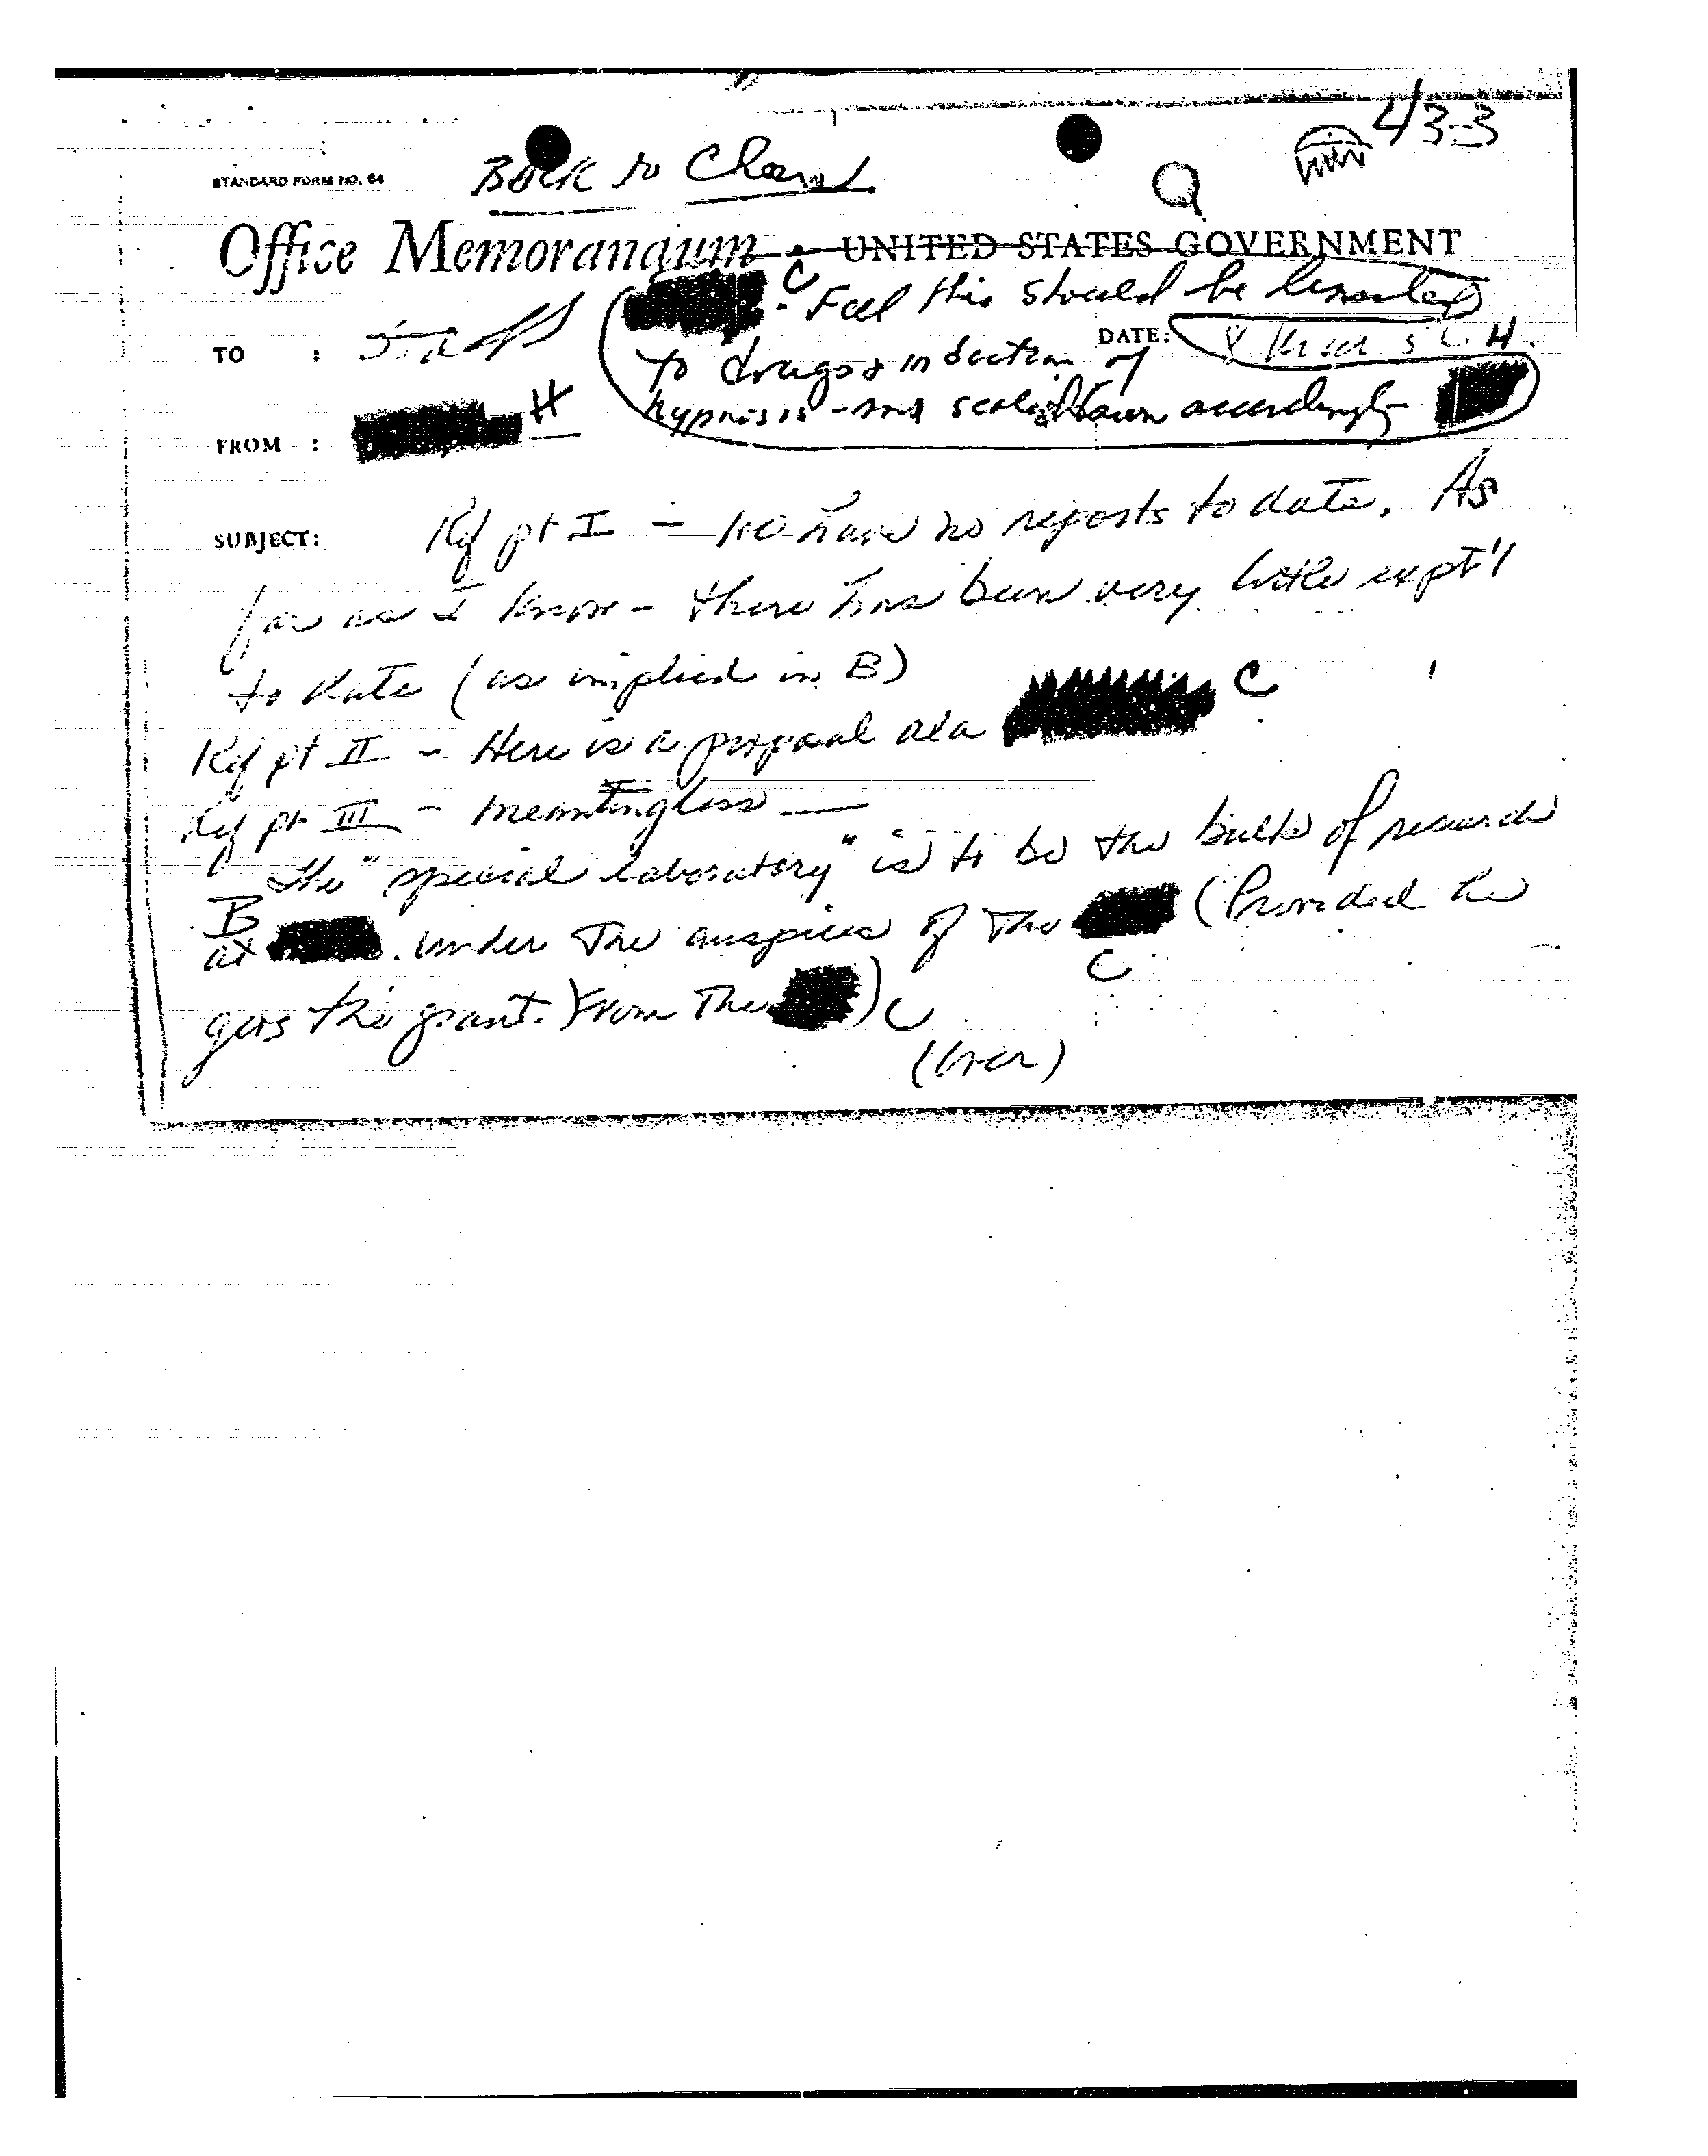 43-3
Back to
STANDARD FORM NO. 64
Q
Office Memorandum • UNITED STATES GOVERNMENT
C - Feel this should be limited
TO : Staff
DATE: H.
to drugs & induction of
hypnosis - and scaled down accordingly
FROM : H
SUBJECT: Ref pt I - We have no reports to date. As
far as I know - there has been very little expt'l
to date (as implied in B)
Ref pt II - Here is a proposal ala C
Ref pt III - meaningless —
The "special laboratory" is to be the bulk of research
B
at under the auspices of the (Provided he
C
gets the grant. From The ) C
(Over)